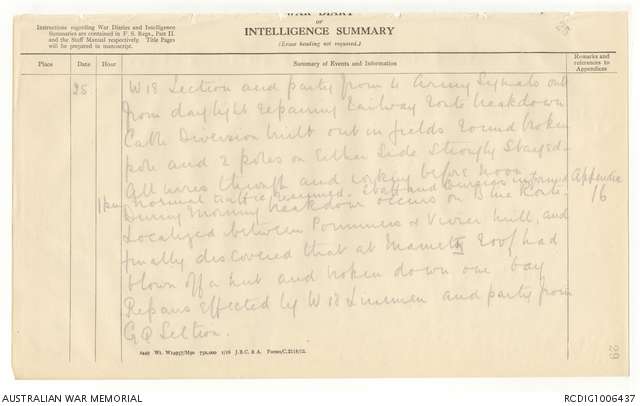 WAR DIARY
or
INTELLIGENCE SUMMARY
(Erase heading not required.)
Instructions regarding War Diaries and Intelligence
Summaries are contained in F. S. Regs., Part II.
and the Staff Manual respectively. Title Pages
will be prepared in manuscript.
Place Date Hour Summary of Events and Information Remarks and references to Appendices
25 W18 Section and party from 4 Army Signals out
from daylight repairing Railway Route breakdown
Cable Diversion built out in fields round broken
pole and 2 poles on Either Side Strongly Stayed.
All wires through and working before noon
1pm Normal traffic resumed. Staff and informed Appendice
16
During Evening breakdown occurs on Blue Route
Localized between Pommiers & Vivier Mill, and
finally discovered that at Mametz roof had
blown off a hut and broken down one bay
Repairs effected by W18 Linemen and party from
GQ Section.
2449 Wt. W14957/M90 750,000 1/16 J.B.C. & A. Forms/C.2118/12.
29
AUSTRALIAN WAR MEMORIAL
RCDIG1006437